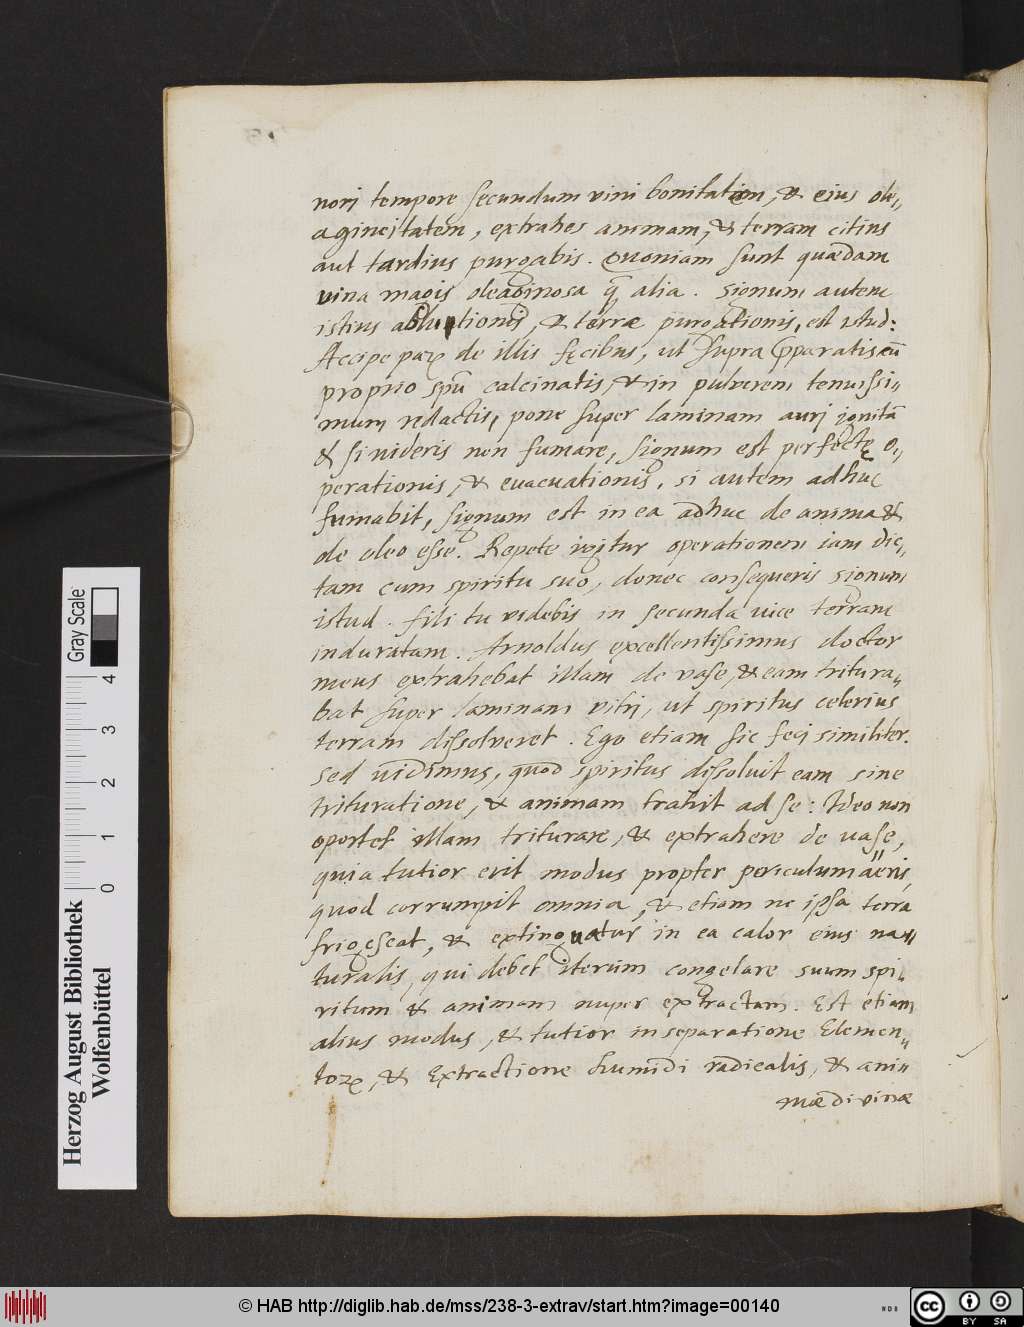 norj tempore secundum vini bonitatem, & eius ole//
agineitatem, extrahes animam, & terram citius
aut tardius purgabis. Quoniam sunt quædam
vina magis oleaginosa q̄ alia. Signum autem
istius ablutionis, & terræ purgationis, est istud:
Accipe de illis fęcibus, ut supra pparatis cū
proprio spū calcinatis, & in pulverem tenuissi//
mum redactis, pone super laminam aurj ignitā
& si videris non fumare, signum est perfectę o//
perationis, & evacuationis, si autem adhuc
fumabit, signum est in ea adhuc de anima &
de oleo esse. Repete igitur operationem iam dic//
tam cum spiritu suo, donec consequeris signum
istud. fili tu videbis in secunda vice terram
induratam. Arnoldus excellentissimus doctor
meus extrahebat illam de vase, & eam tritura//
bat super laminam vitrj, ut spiritus celerius
terram dissolveret. Ego etiam sic fecj similiter.
Sed vidimus, quod spiritus dissolvit eam sine
trituratione, & animam trahit ad se: Ideo non
oportet illam triturare, & extrahere de vase,
quia tutior erit modus propter periculum aëris,
quod corrumpit omnia, & etiam ne ipsa terra
frigęscat, & extinguatur in ea calor eius na//
turalis, qui debet iterum congelare suum spi//
ritum & animam nuper extractam. Est etiam
alius modus, & tutior in separatione Elemen//
toꝝ, & Extractione humidi radicalis, & ani//
mæ divinæ
Herzog August Bibliothek
Wolfenbüttel
Gray Scale
0 1 2 3 4
© HAB http://diglib.hab.de/mss/238-3-extrav/start.htm?image=00140
cc BY SA